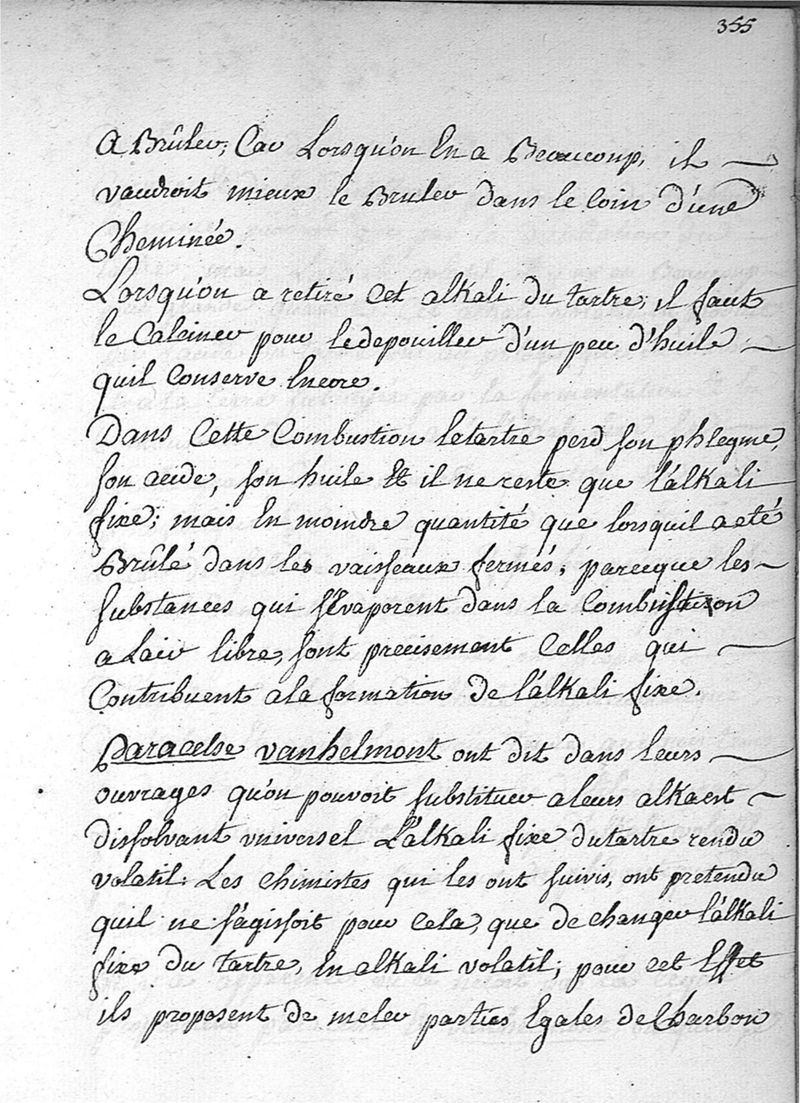 355
A Brûler, Car Lorsqu'on En a Beaucoup, il
vaudroit mieux le Bruler dans le Coin d'une
Cheminée.
Lorsqu'on a retiré Cet alkali du tartre, il faut
le Calciner pour ledepouiller d'un peu d'huile
quil Conserve Encore.
Dans Cette Combustion letartre perd son phlegme,
son acide, son huile Et il ne reste que l'alkali
fixe; mais En moindre quantité que lorsquil aeté
Brûlé dans les vaisseaux fermés; parceque les
substances qui s'Evaporent dans la Combustion
a Lair libre, sont precisement Celles qui
Contribuent ala formation de l'alkali fixe.
Paracelse vanhelmont ont dit dans leurs
ouvrages qu'on pouvoit substituer aleurs alkaest
dissolvant universel L'alkali fixe dutartre rendu
volatil. Les Chimistes qui les ont suivis, ont pretendu
quil ne s'agissoit pour Cela, que de changer l'alkali
fixe du tartre, En alkali volatil; pour cet Effet
ils proposent de meler parties Egales de Charbon